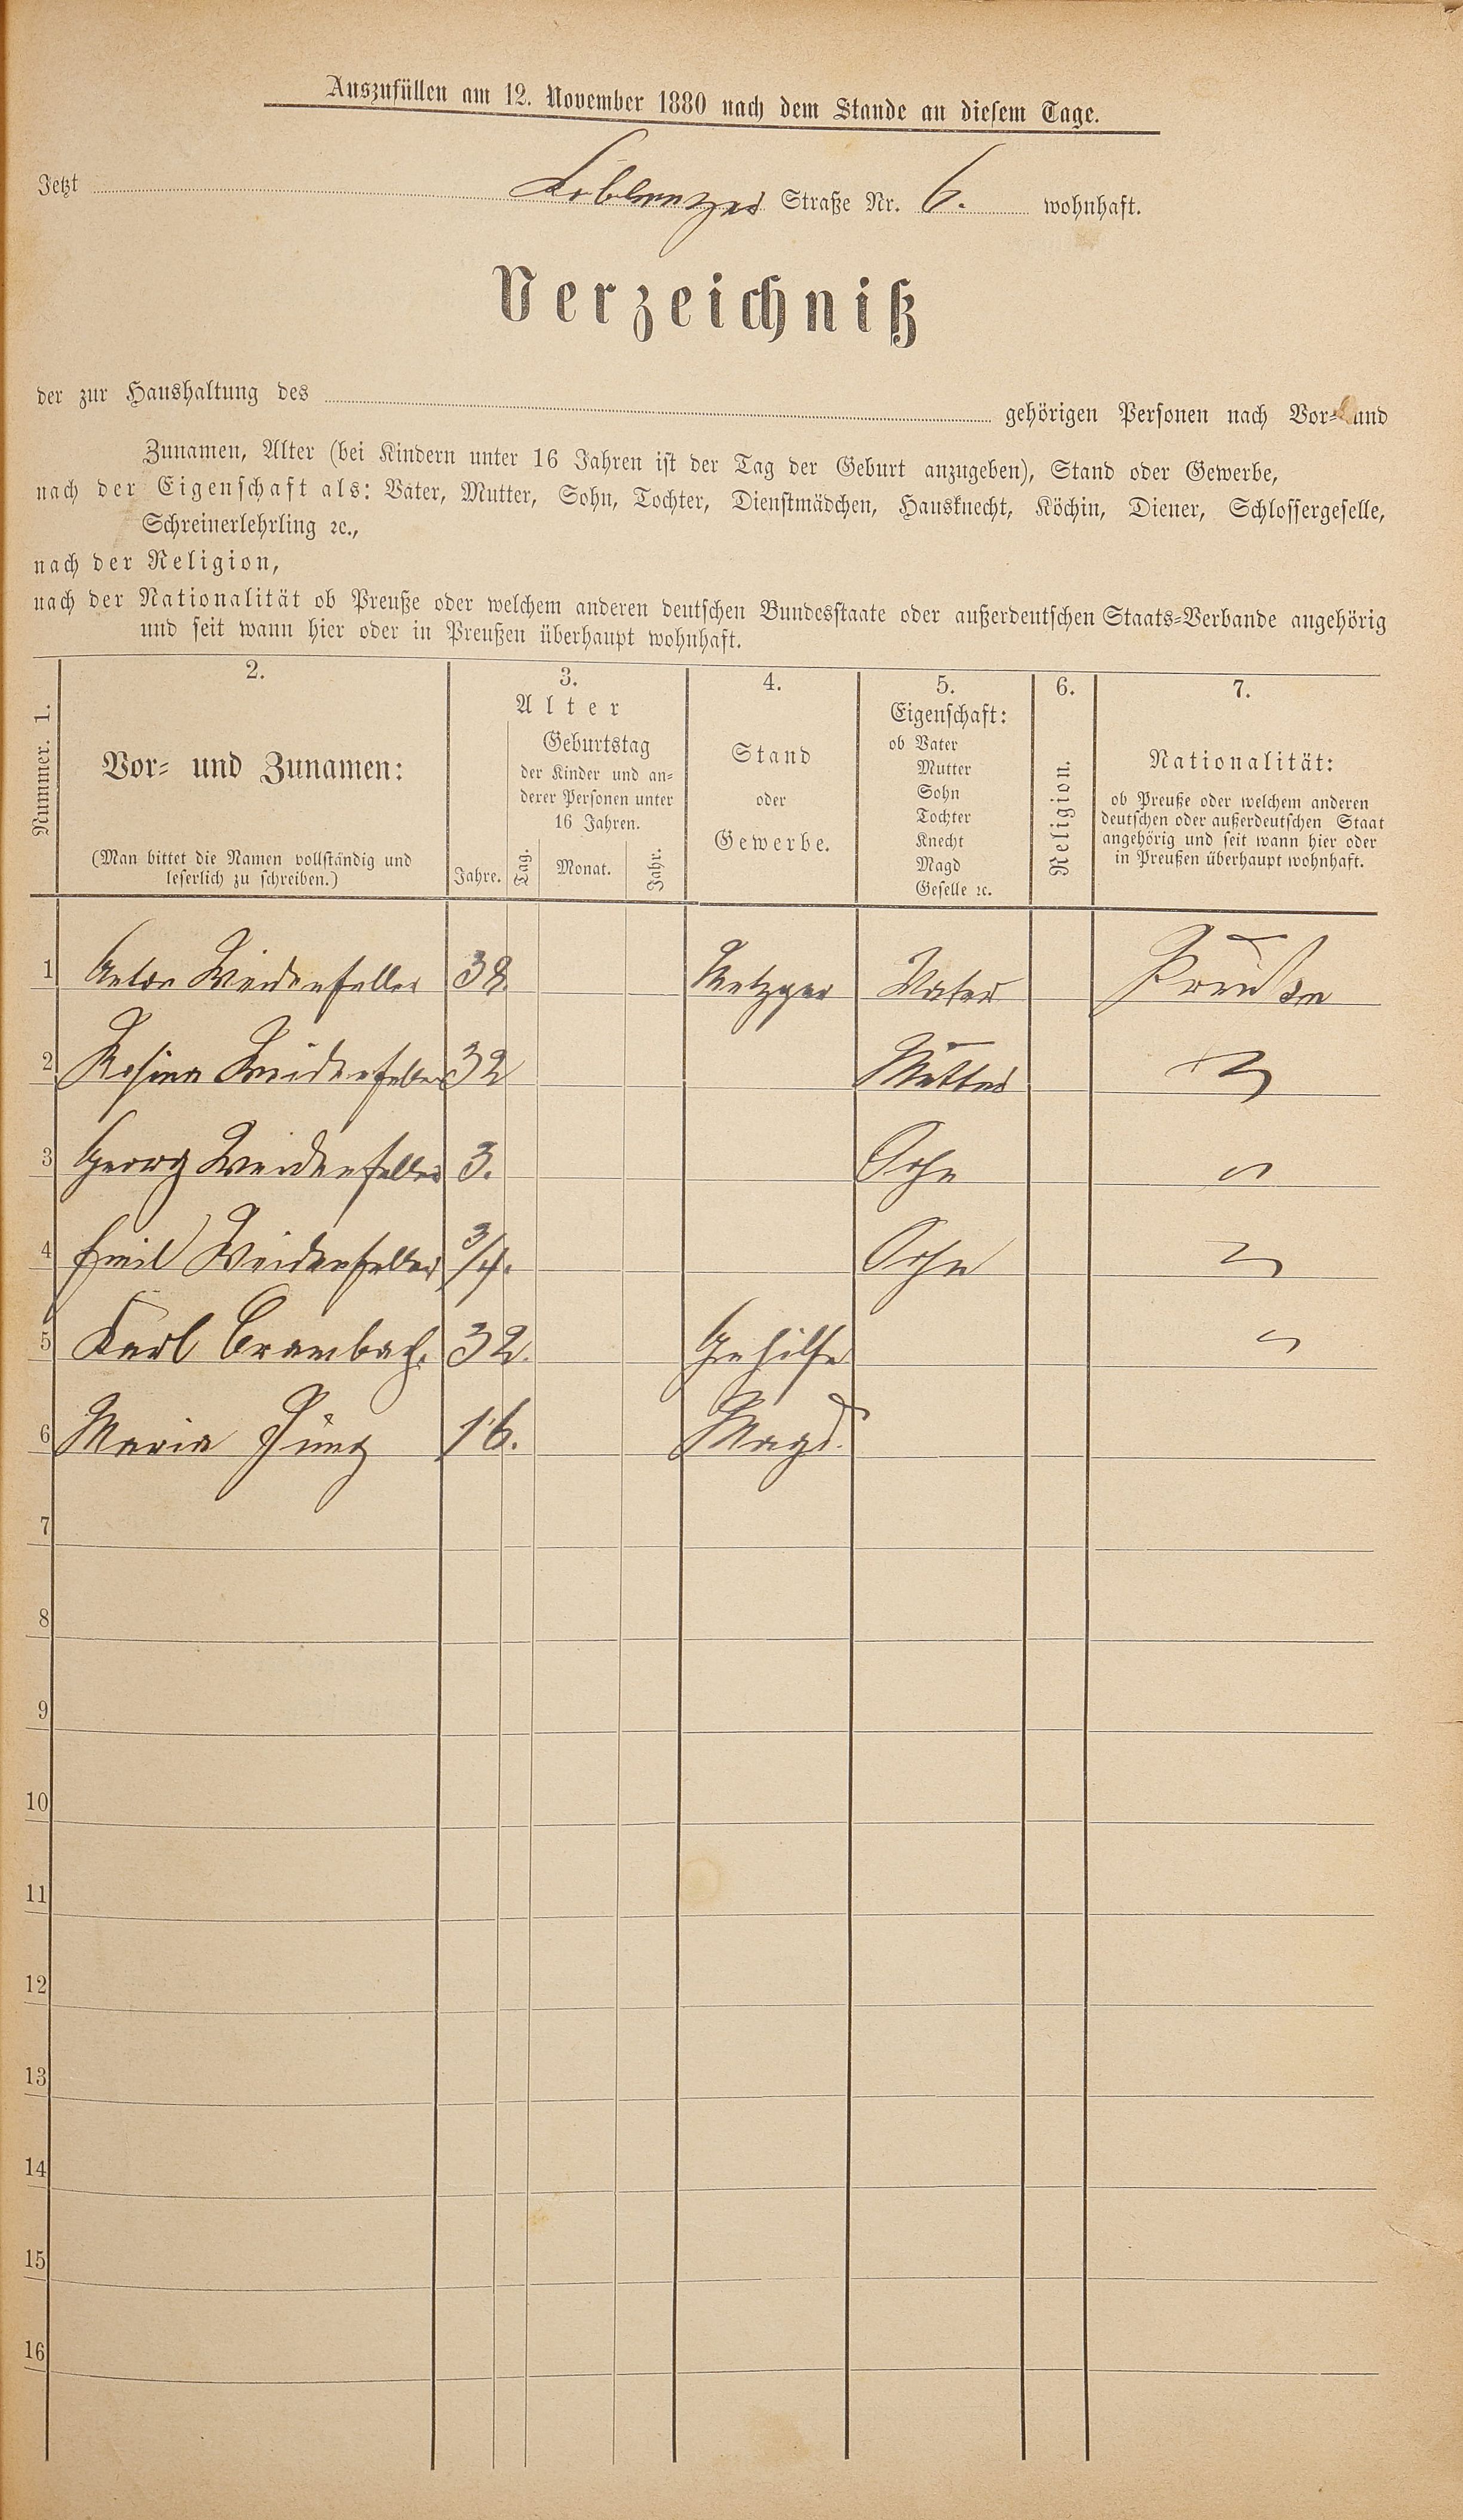 Auszufüllen am 12. November 1880 nach dem Stande an diesem Tage.
Jetzt Koblenzer Straße Nr. 6. wohnhaft.
Verzeichniß
der zur Haushaltung des gehörigen Personen nach Vor- und
Zunamen, Alter (bei Kindern unter 16 Jahren ist der Tag der Geburt anzugeben), Stand oder Gewerbe,
nach der Eigenschaft als: Vater, Mutter, Sohn, Tochter, Dienstmädchen, Hausknecht, Köchin, Diener, Schlossergeselle,
Schreinerlehrling ꝛc.,
nach der Religion,
nach der Nationalität ob Preuße oder welchem anderen deutschen Bundesstaate oder außerdeutschen Staats-Verbande angehörig
und seit wann hier oder in Preußen überhaupt wohnhaft.
Nummer. 1.
2.
Vor- und Zunamen:
(Man bittet die Namen vollständig und
leserlich zu schreiben.)
3.
Alter
Jahre.
Geburtstag
der Kinder und an-
derer Personen unter
16 Jahren.
Tag. Monat. Jahr.
4.
Stand
oder
Gewerbe.
5.
Eigenschaft:
ob Vater
Mutter
Sohn
Tochter
Knecht
Magd
Geselle ꝛc.
6.
Religion.
7.
Nationalität:
ob Preuße oder welchem anderen
deutschen oder außerdeutschen Staat
angehörig und seit wann hier oder
in Preußen überhaupt wohnhaft.
1 Anton Weidenfeller 38 Metzger Vater Preußen
2 Rosina Weidenfeller 32 Mutter
3 Georg Weidenfeller 3. Sohn
4 Emil Weidenfeller 3/4. Sohn
5 Karl Crambach. 32. Gehilfe
6 Maria Jüng 16. Magd.
7
8
9
10
11
12
13
14
15
16